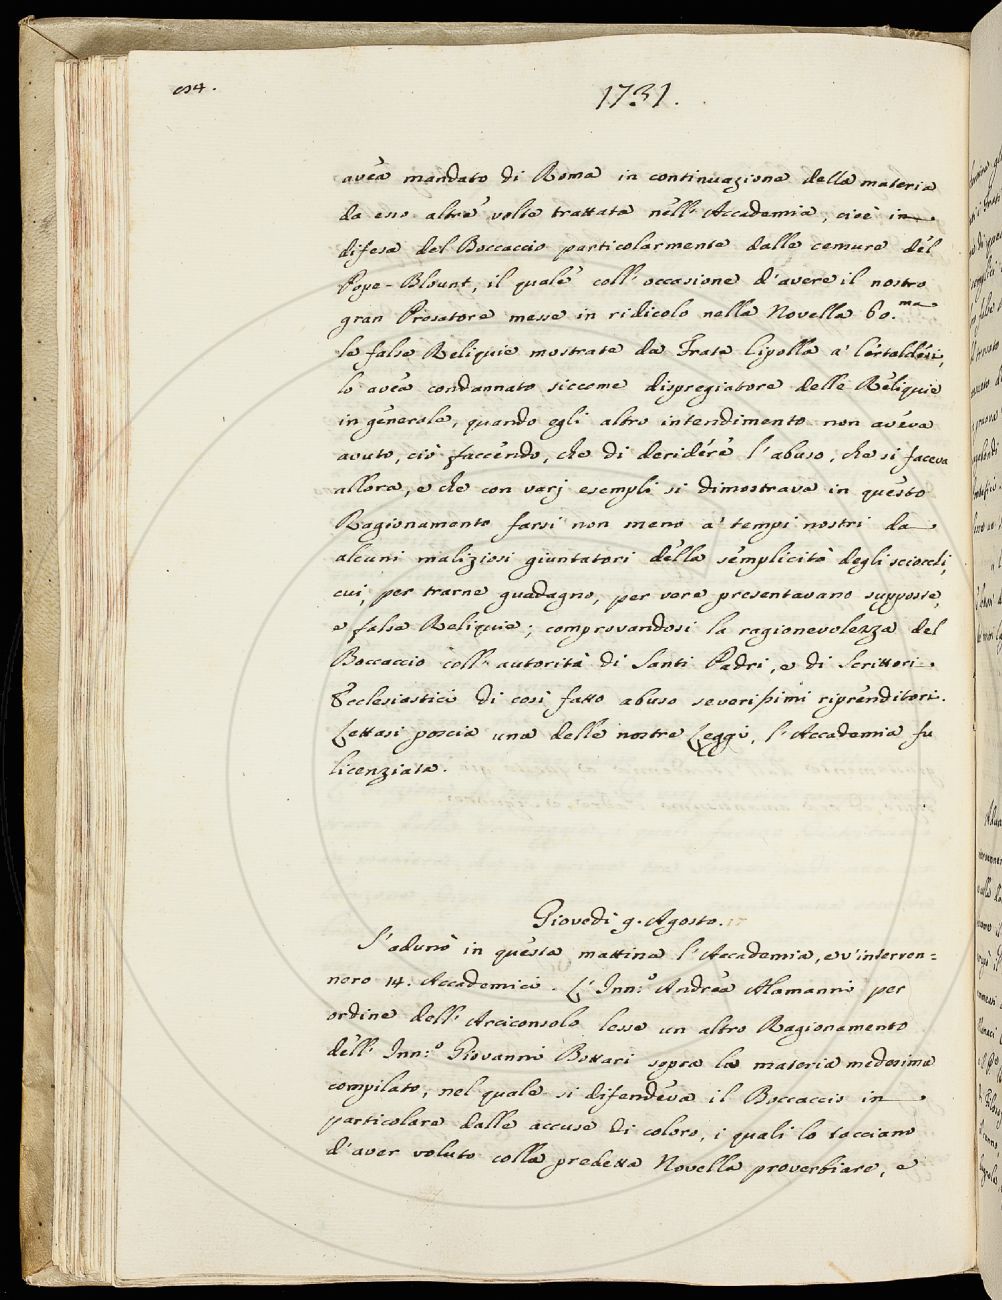 1731.
avea mandato di Roma in continuazione della materia
da esso altre volte trattata nell'Accademia, cioè in
difesa del Boccaccio particolarmente dalle censure del
Pope-Blount, il quale coll'occasione d'avere il nostro
gran Prosatore messe in ridicolo nella Novella 60.ma
le false Reliquie mostrate da Frate Cipolla a' Certaldesi,
lo avea condannato siccome dispregiatore delle Reliquie
in generale, quando egli altro intendimento non aveva
avuto, ciò faccendo, che di deridere l'abuso, che si faceva
allora, e che con varj esempli si dimostrava in questo
Ragionamento farsi non meno a' tempi nostri da
alcuni maliziosi giuntatori della semplicità degli sciocchi,
cui, per trarne guadagno, per vere presentavano supposte,
e false Reliquie; comprovandosi la ragionevolezza del
Boccaccio coll'autorità di Santi Padri, e di Scrittori
Ecclesiastici di così fatto abuso severissimi riprenditori.
Lettasi poscia una delle nostre Leggi, l'Accademia fu
licenziata.
Giovedì 9. Agosto.
S'adunò in questa mattina l'Accademia, e v'interven=
nero 14. Accademici. L'Inn:o Andrea Alamanni per
ordine dell'Arciconsolo lesse un altro Ragionamento
dell'Inn:o Giovanni Bottari sopra la materia medesima
compilato, nel quale si difendeva il Boccaccio in
particolare dalle accuse di coloro, i quali lo tacciano
d'aver voluto colla predetta Novella proverbiare, e